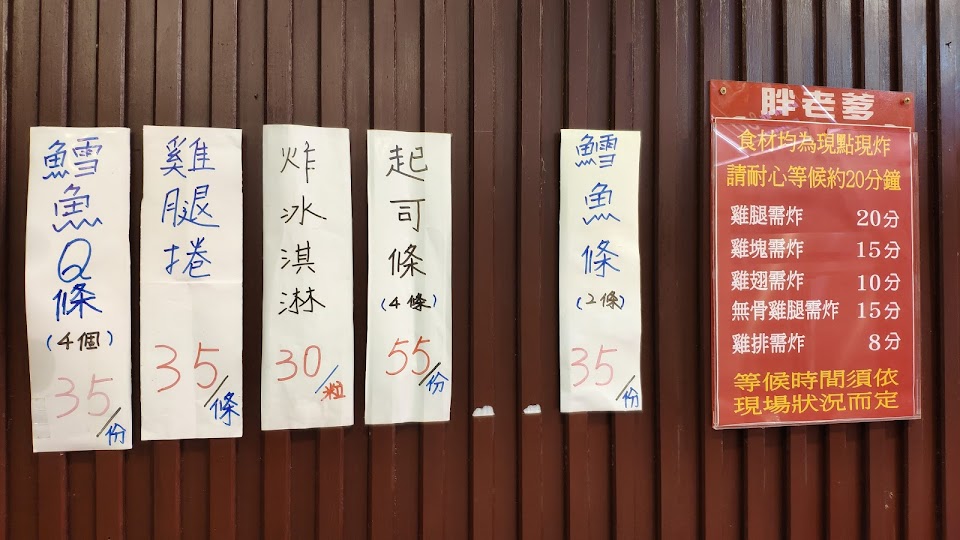 鱈魚Q條
(4個)
35/份
雞腿捲
35/條
炸冰淇淋
30/粒
起司條
(4條)
55/份
鱈魚條
(2條)
35/份
胖老爹
食材均為現點現炸
請耐心等候約20分鐘
雞腿需炸 20分
雞塊需炸 15分
雞翅需炸 10分
無骨雞腿需炸 15分
雞排需炸 8分
等候時間須依
現場狀況而定